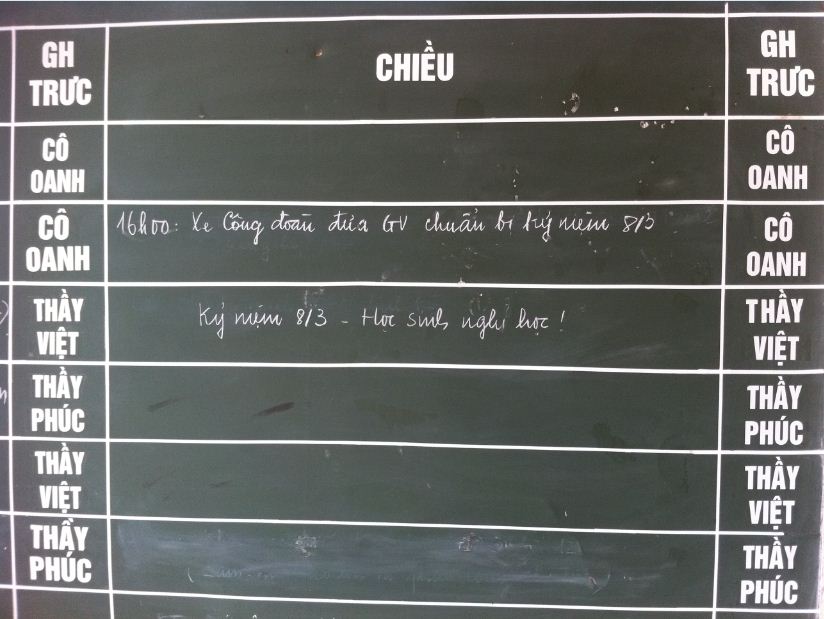 GH TRƯC CHIỀU GH TRƯC
CÔ OANH CÔ OANH
CÔ OANH 16h00: Xe Công đoàn đưa GV chuẩn bị kỷ niệm 8/3 CÔ OANH
THẦY VIỆT Kỷ niệm 8/3 - Học sinh nghỉ học! THẦY VIỆT
THẦY PHÚC THẦY PHÚC
THẦY VIỆT THẦY VIỆT
THẦY PHÚC THẦY PHÚC